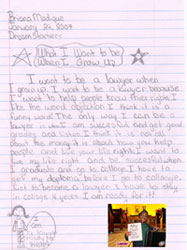 Briana Madique
January 22, 2009
Dream Starters
What I Want to be
When I Grow Up
I want to be a lawyer when
I grow up. I want to be a lawyer because
I want to help people know their right. I
like the word objection I think it is a
funny word. The only way I can be a
lawyer is
what I am successful and get good
grades and listen. I think it is not all
about the money it is about how you help
people and life your life right. I want to
live my life right and be successful when
I graduate and go to college. I have to
get my diploma before I go to college.
But to become a lawyer I have to stay
in college 4 years. I am ready for it!!
I am